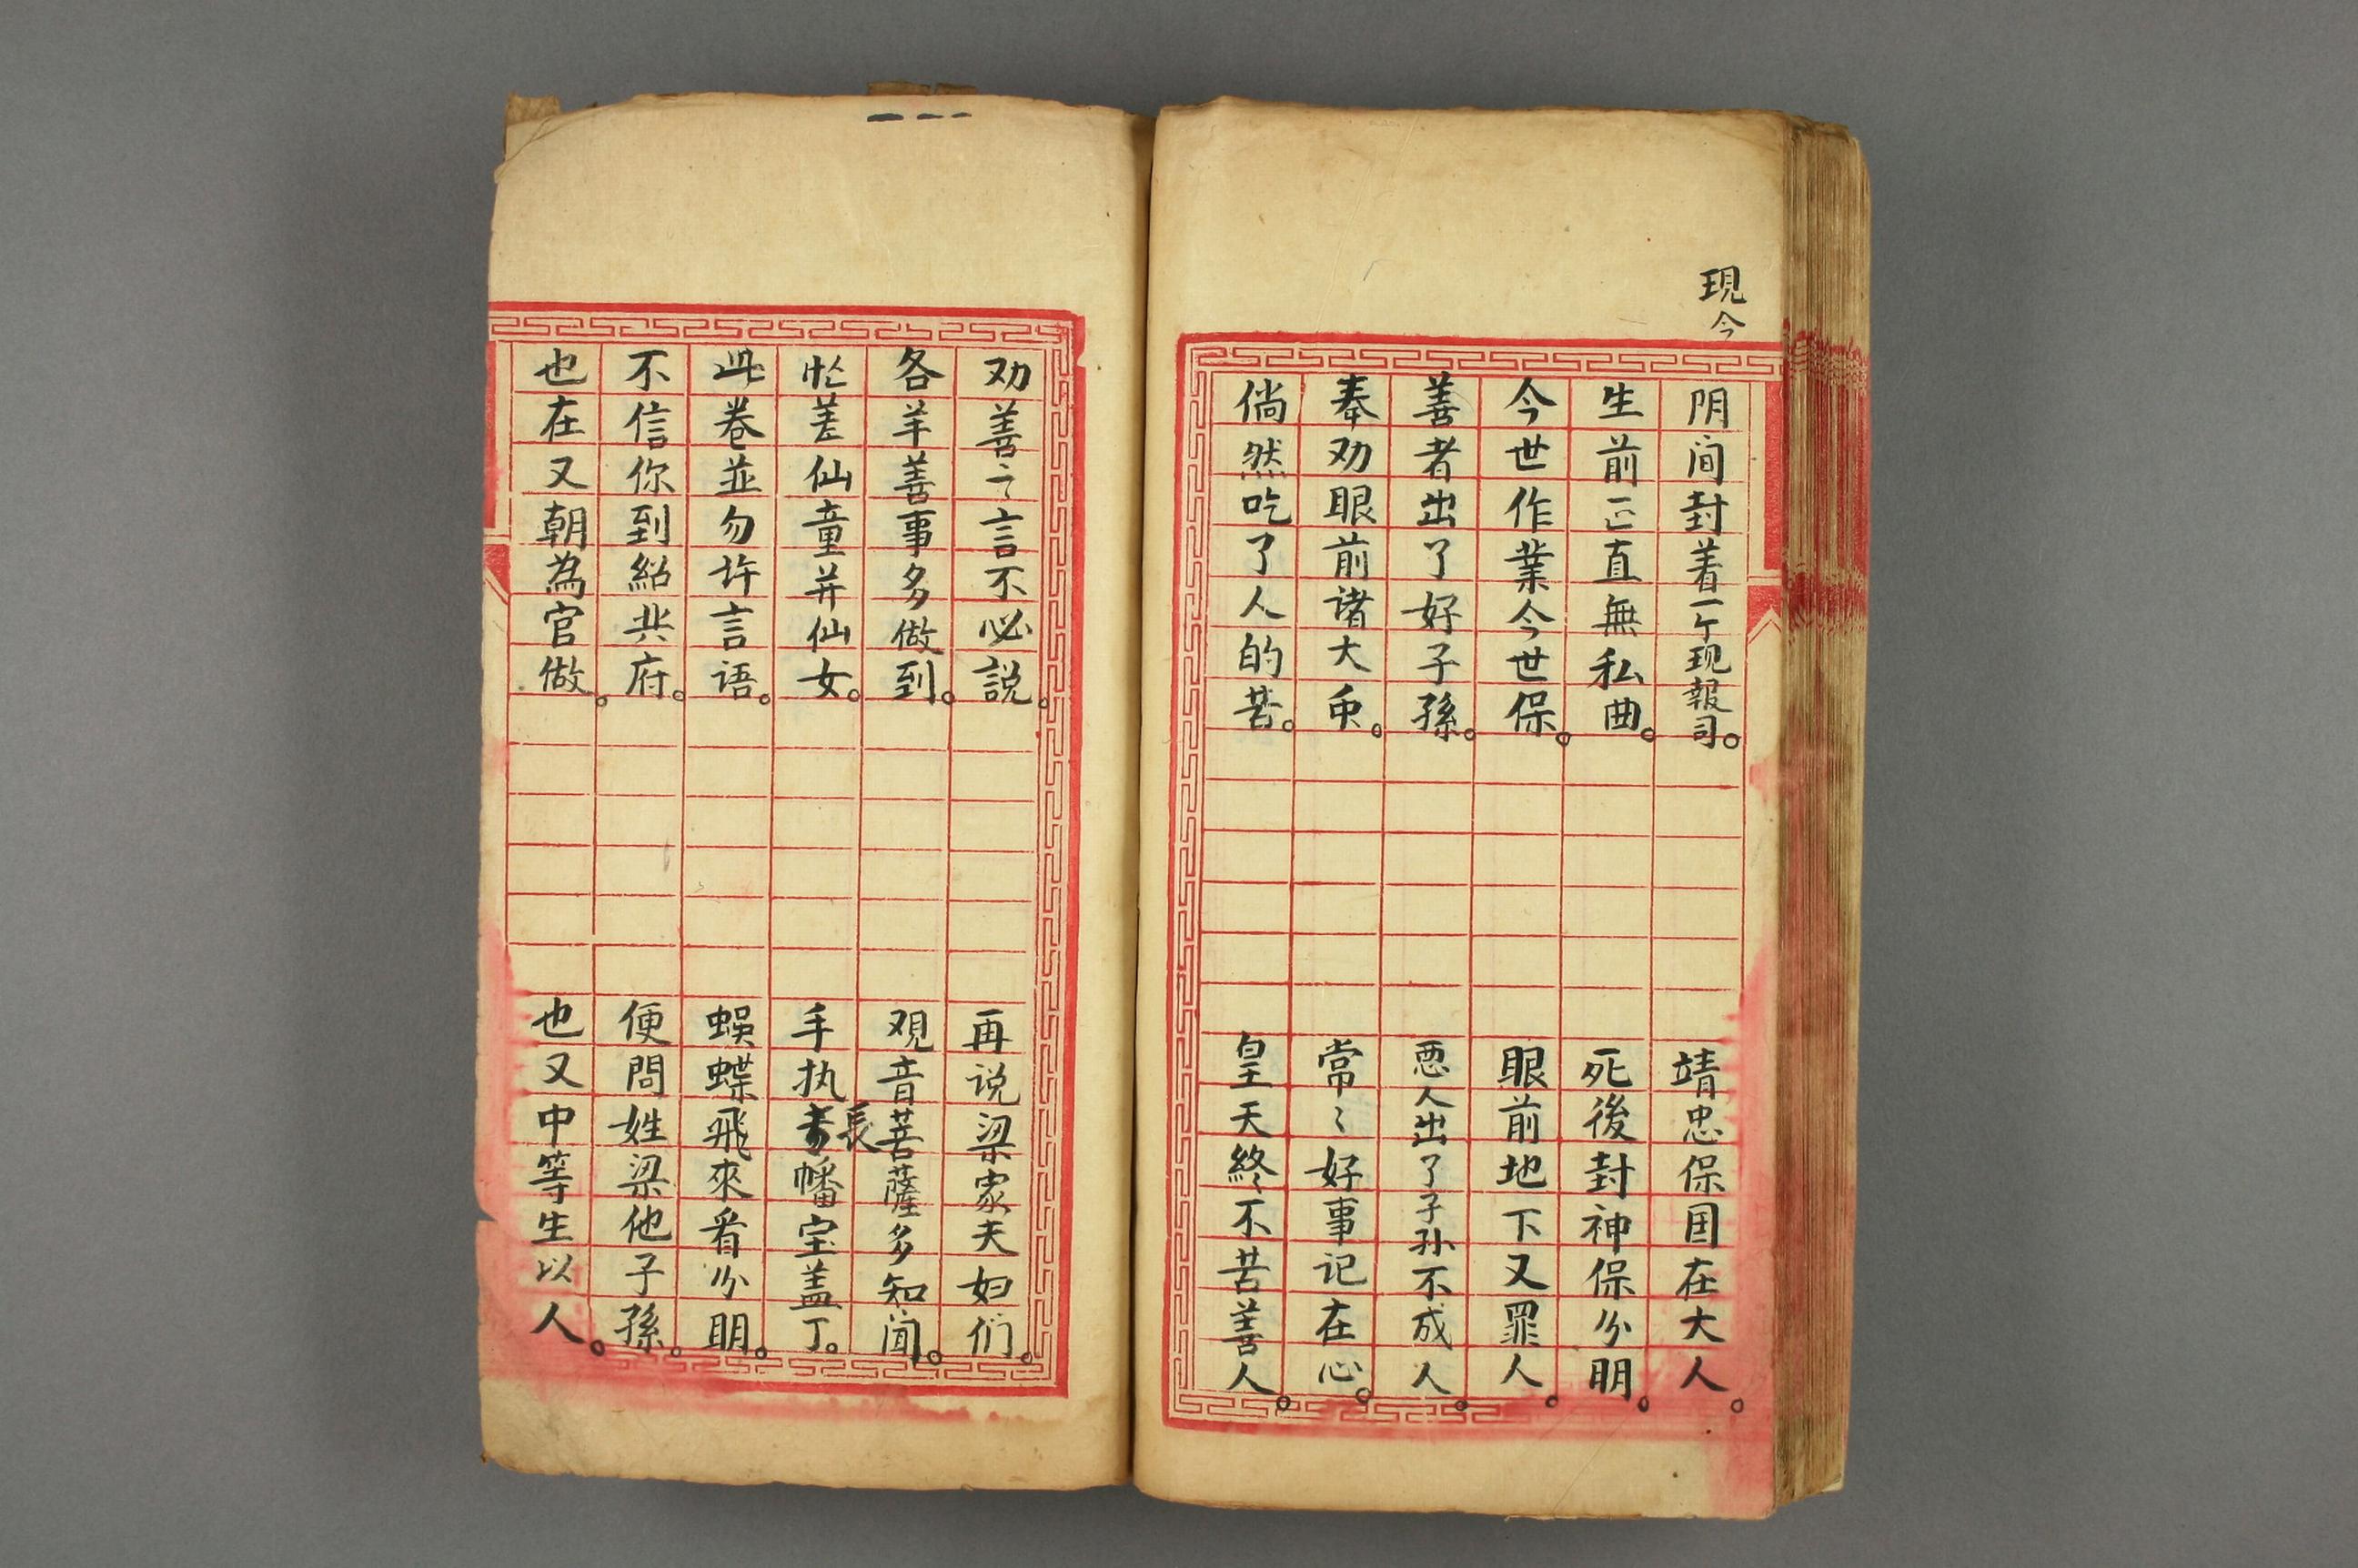 現今
阴间封着一个现報司。
靖忠保国在大人。
生前正直無私曲。
死後封神保分明。
今世作業今世保。
眼前地下又罪人。
善者出了好子孫。
悪人出了子孙不成人。
奉劝眼前诸大
常〻好事记在心。
倘然吃了人的苦。
皇天終不苦善人。
劝善之言不必説。
再说梁家夫妇们。
各羊善事多做到。
观音菩薩多知闻。
忙差仙童并仙女。
手执長幡宝盖丁。
此卷並勿許言语。
蜈蝶飛來看分明。
不信你到紹兴府。
便問姓梁他子孫。
也在又朝為官做。
也又中等生以人。